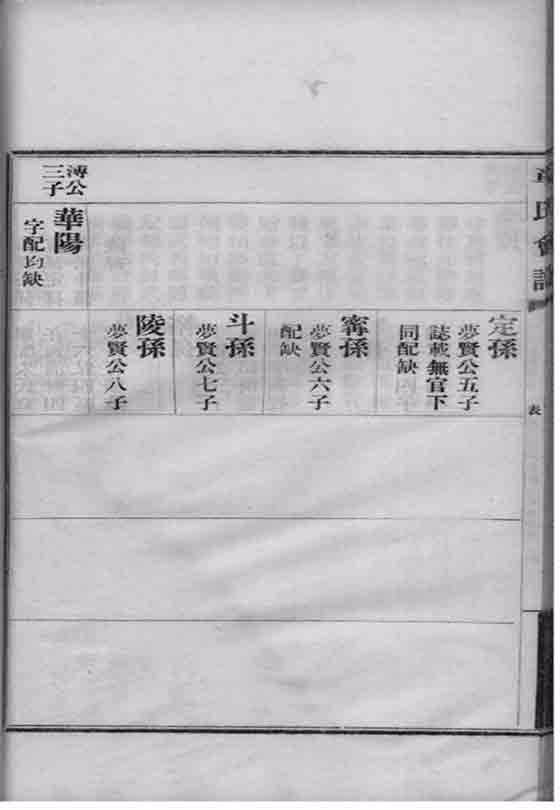 氏會譜
表
溥公
三子
華陽
字配均缺
定孫
夢賢公五子
誌載無官下
同配缺
寗孫
夢賢公六子
配缺
斗孫
夢賢公七子
陵孫
夢賢公八子